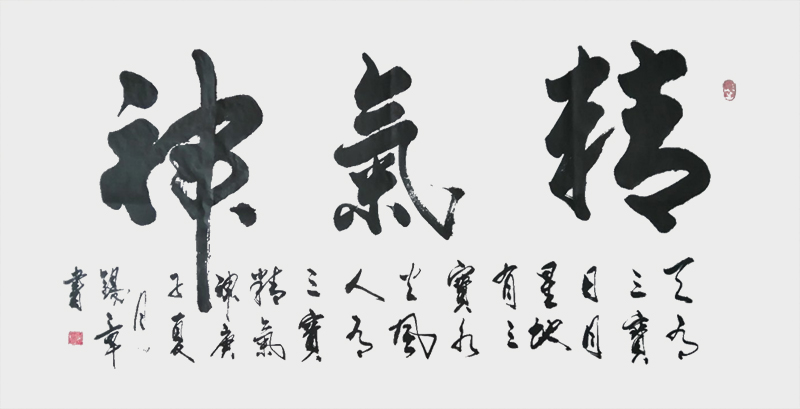 精氣神
天有
三寶
日月
星地
有三
寶水
火風
人有
三寶
精氣
神庚
子夏
月
章
書